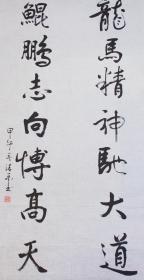 龍馬精神馳大道
鯤鵬志向博高天
甲午